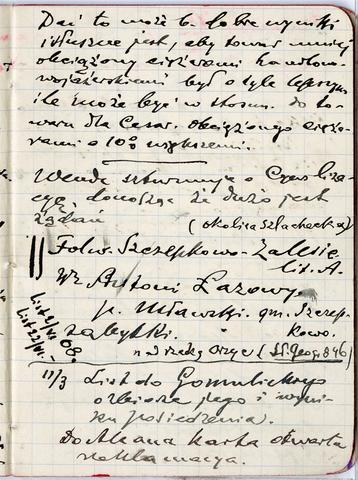 Dać to może b. dobre wyniki
i słuszne jest, aby towar mniej
obciążony ciężarami handlowo-
wojażerskiemi był o tyle lepszym
ile może być w stosun. do to-
waru dla Cesar. obciążonego cięża-
rami o 10% większemi.
Wende szturmuje o Cywiliza-
cyę, donosząc że dużo jest
żądań
(okolica szlachecka)
Folw. Szczepkowo-Zalesie
lit. A.
Wz Antoni Łazowy
p. Mławski. gm. Szczep-
kowo.
zabytki.
List
08.
nad rzeką Orzyc (Sł. Geog. 846)
11/3 List do Gomulickiego
odbiorze jego i wyni-
ku posiedzenia.
Dołkana karta otwarta
reklamacya.